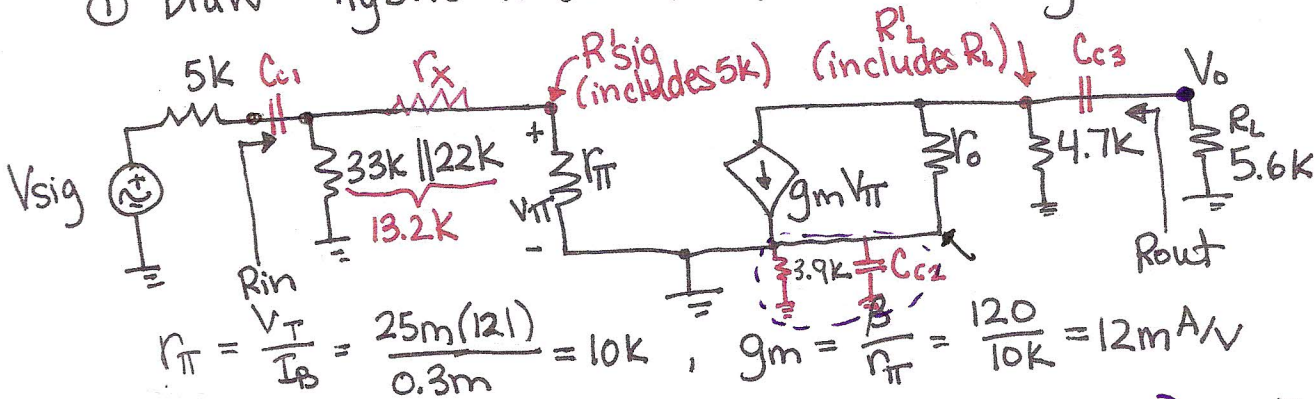 ① Draw
5K Cc1 rx R'sig (includes 5K) R'L (includes RL) Cc3 Vo
Vsig 33K || 22K + rπ Vπ - gmVπ ro 4.7K RL 5.6K
13.2K
Rin 3.9K Cc2 Rout
rπ = VT/IB = 25m(121)/0.3m = 10K , gm = β/rπ = 120/10K = 12mA/V